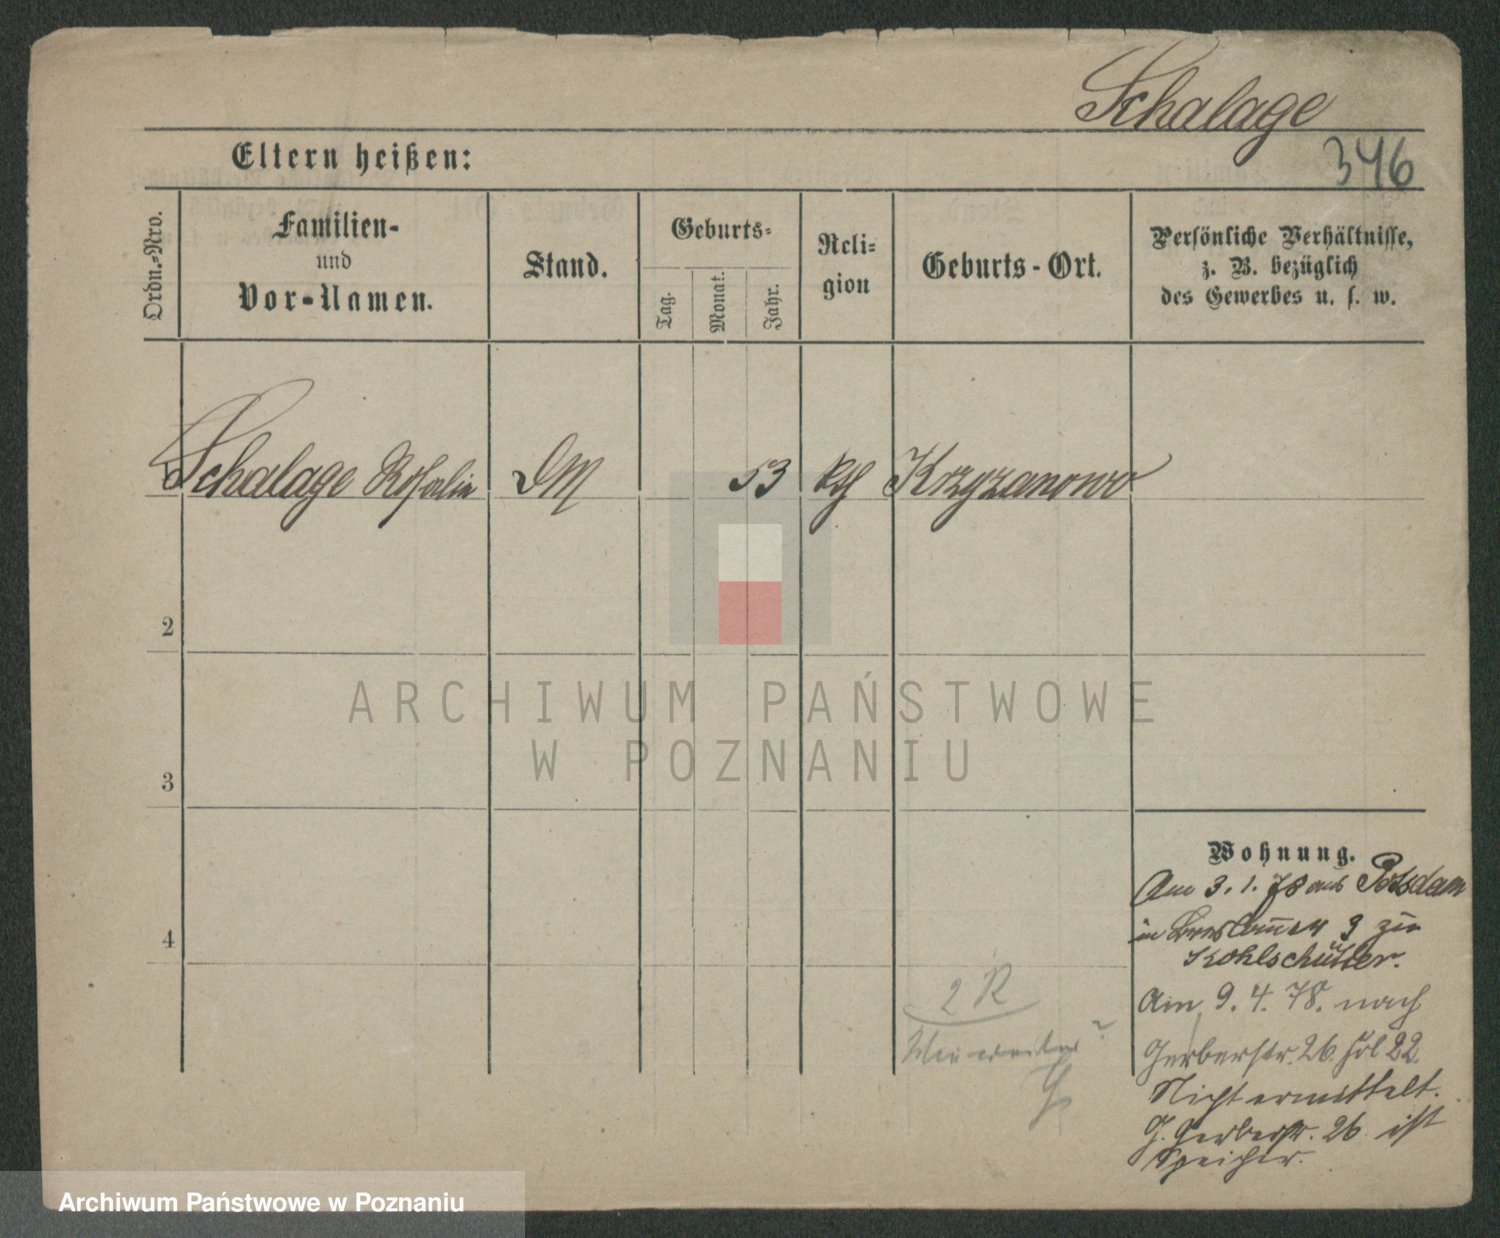 Schalage
346
Eltern heißen:
Ordn.-Nro.
Familien-
und
Vor-Namen.
Stand.
Geburts-
Tag.
Monat.
Jahr.
Reli-
gion
Geburts-Ort.
Persönliche Verhältnisse,
z. B. bezüglich
des Gewerbes u. s. w.
Schalage DM 53 kth Krzyzanowo
2
3
4
ARCHIWUM PAŃSTWOWE
W POZNANIU
Wohnung.
Am 3. 1. 78 aus Potsdam
in Breslauer 9 zu
Kohlschütter.
Am 9. 4. 78. nach
Gerberstr. 26 22.
Nicht ermittelt.
G. Gerberstr. 26 ist
Speicher.
2 R
Archiwum Państwowe w Poznaniu